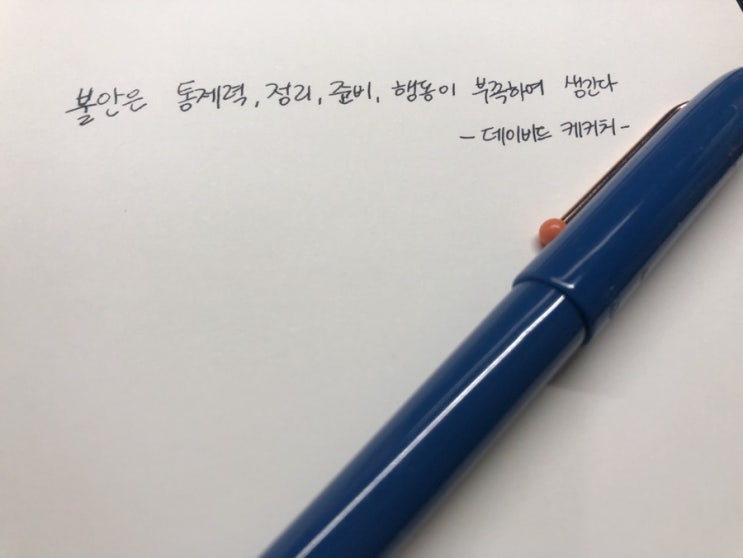 불안은 통제력, 정리, 준비, 행동이 부족하여 생긴다
- 데이비드 케커처 -